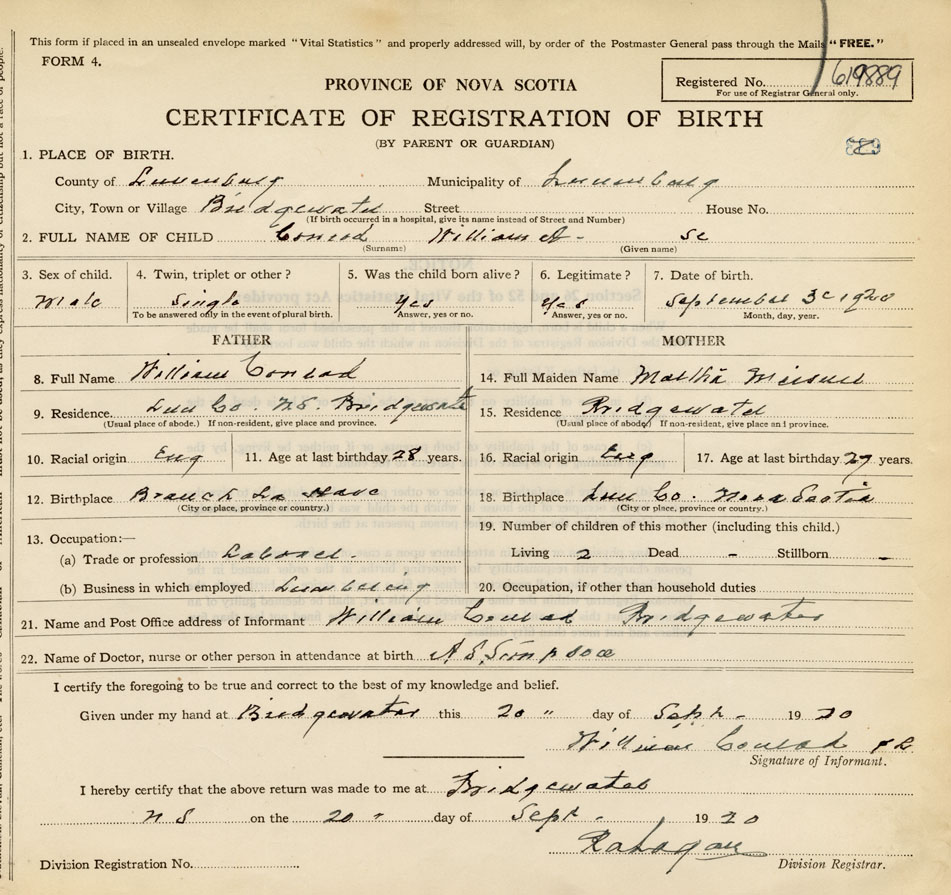 This form if placed in an unsealed envelope marked "Vital Statistics" and properly addressed will, by order of the Postmaster General pass through the Mails "FREE."
FORM 4.
PROVINCE OF NOVA SCOTIA
Registered No. 619889
For use of Registrar General only.
CERTIFICATE OF REGISTRATION OF BIRTH
(BY PARENT OR GUARDIAN)
1. PLACE OF BIRTH.
County of Lunenburg Municipality of Lunenburg
City, Town or Village Bridgewater Street House No.
(If birth occurred in a hospital, give its name instead of Street and Number)
2. FULL NAME OF CHILD Conrad William A-
(Surname) (Given name)
3. Sex of child. 4. Twin, triplet or other? 5. Was the child born alive? 6. Legitimate? 7. Date of birth.
Male Single Yes Yes September 1920
To be answered only in the event of plural birth. Answer, yes or no. Answer, yes or no. Month, day, year.
FATHER MOTHER
8. Full Name William Conrad 14. Full Maiden Name Martha
9. Residence. Lun Co. N.S. Bridgewater 15. Residence Bridgewater
(Usual place of abode.) If non-resident, give place and province. (Usual place of abode) If non-resident, give place and province.
10. Racial origin Eng 11. Age at last birthday 28 years. 16. Racial origin Eng 17. Age at last birthday 27 years.
12. Birthplace Branch La Have 18. Birthplace Lun Co. Nova Scotia
(City or place, province or country.) (City or place, province or country.)
19. Number of children of this mother (including this child.)
13. Occupation:—
(a) Trade or profession Laborer. Living 2 Dead - Stillborn -
(b) Business in which employed Lumbering 20. Occupation, if other than household duties
21. Name and Post Office address of Informant William Conrad Bridgewater
22. Name of Doctor, nurse or other person in attendance at birth A S Simpson
I certify the foregoing to be true and correct to the best of my knowledge and belief.
Given under my hand at Bridgewater this 20 " day of Sept - 19 20
William Conrad
Signature of Informant.
I hereby certify that the above return was made to me at Bridgewater
N S on the 20 " day of Sept. 19 20
Division Registration No. Division Registrar.